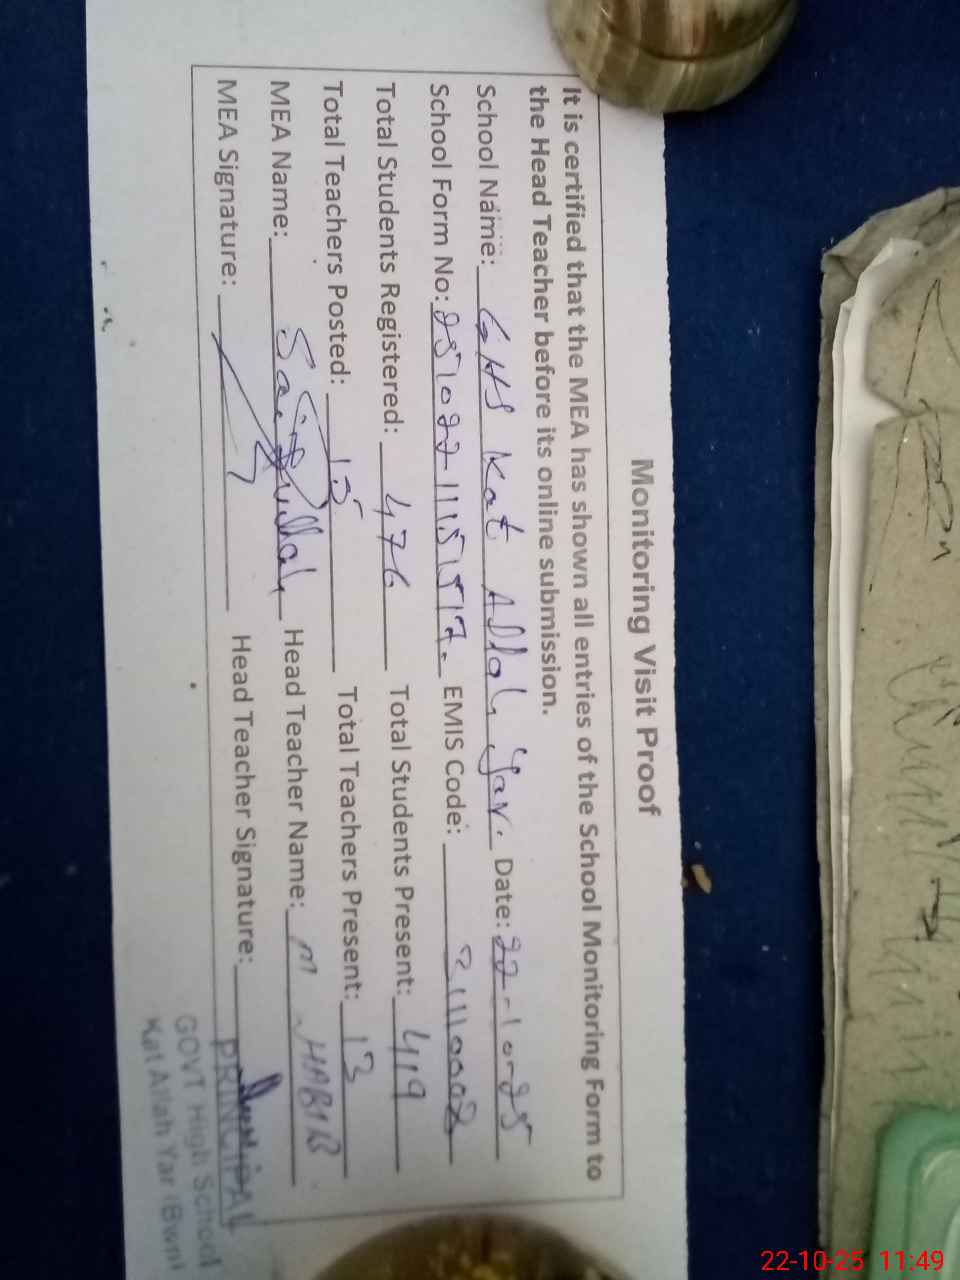 Monitoring Visit Proof
It is certified that the MEA has shown all entries of the School Monitoring Form to
the Head Teacher before its online submission.
School Name: GHS Kat Allah Yar. Date: 22-10-25
School Form No: EMIS Code: 31110002
Total Students Registered: 476 Total Students Present: 419
Total Teachers Posted: 15 Total Teachers Present: 13
MEA Name: Saif Ullah Head Teacher Name: M HABIB
MEA Signature: Head Teacher Signature:
PRINCIPAL
GOVT High School
Kat Allah Yar (Bwn)
22-10-25 11:49